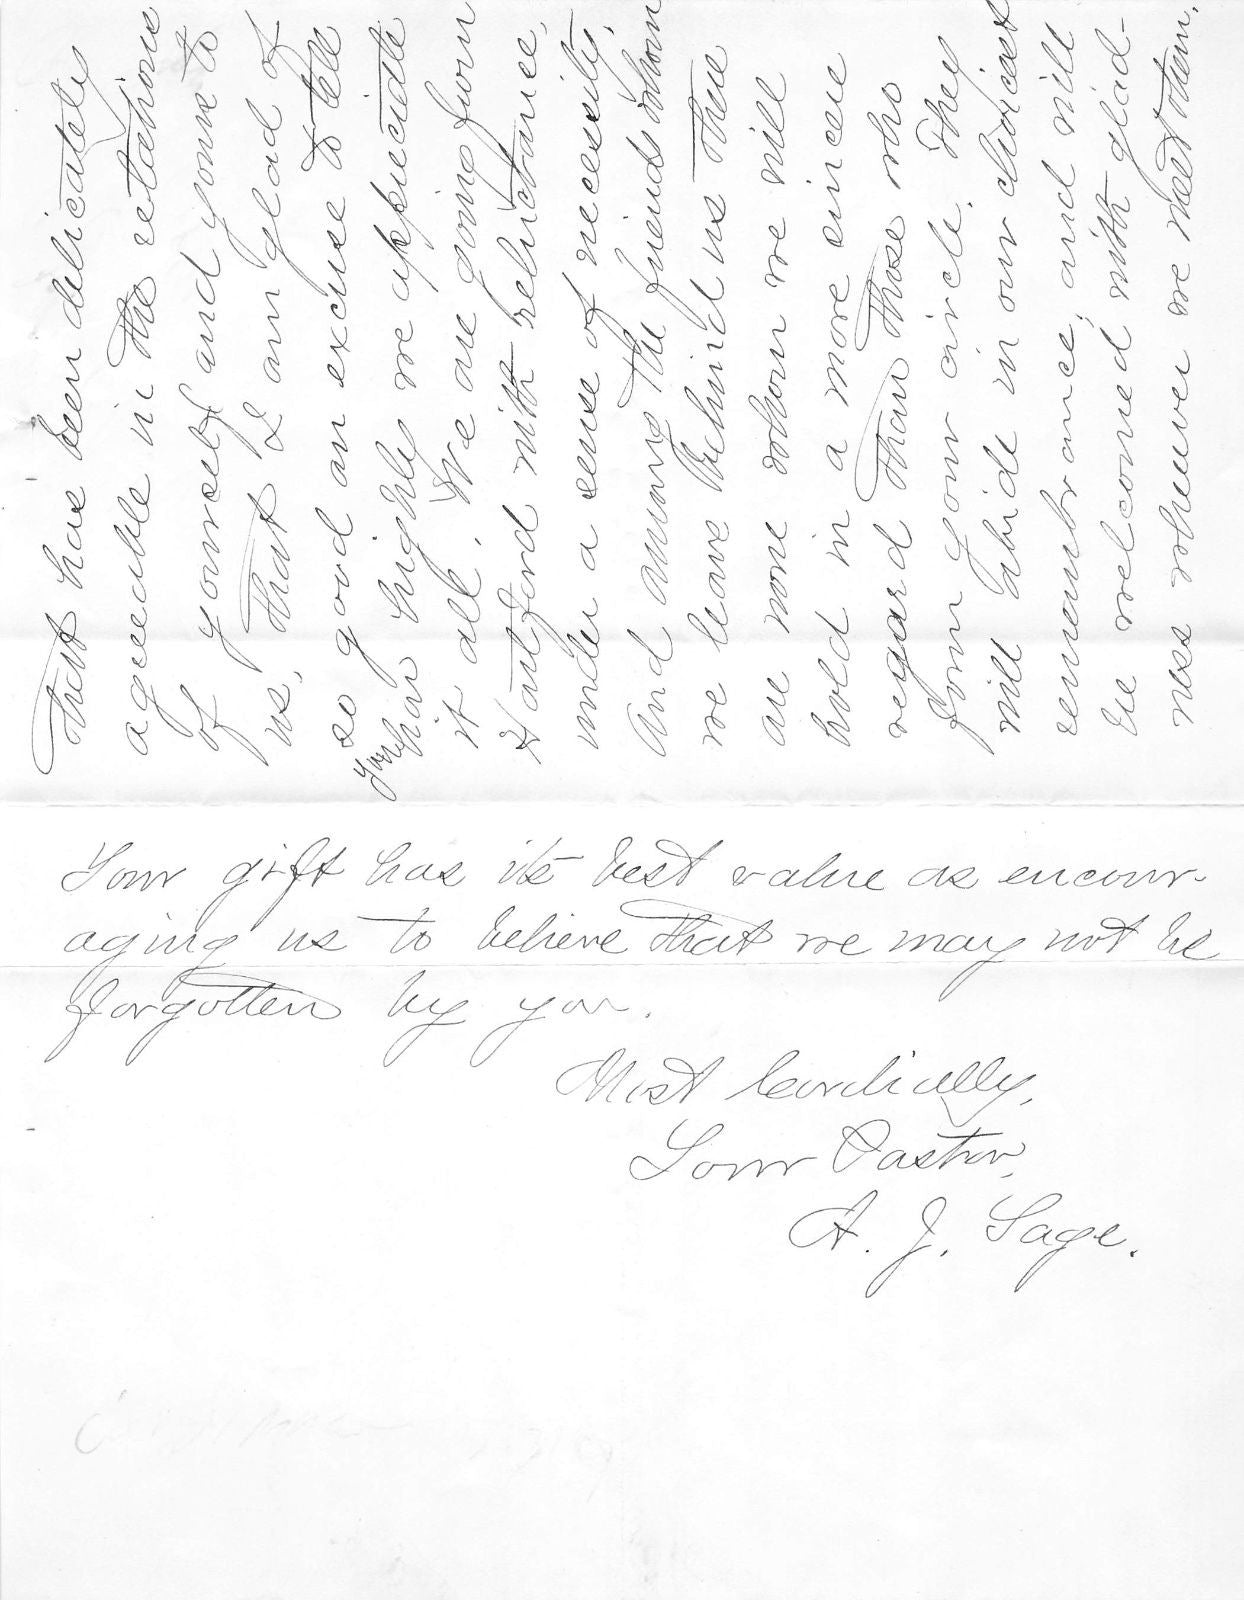 that has been delicately
agreeable in the relations
of yourself and yours to
us, that I am glad of
so good an excuse to tell
you how highly we appreciate
it all. We are going from
Hartford with reluctance,
under a sense of necessity,
and among the friends whom
we leave behind us there
are none whom we will
hold in a more sincere
regard than those who
form your circle. They
will abide in our choicest
remembrance, and will
be welcomed with glad-
ness whenever we meet them.
Your gift has its best value as encour-
aging us to believe that we may not be
forgotten by you.
Most Cordially,
Your Pastor,
A. J. Sage.